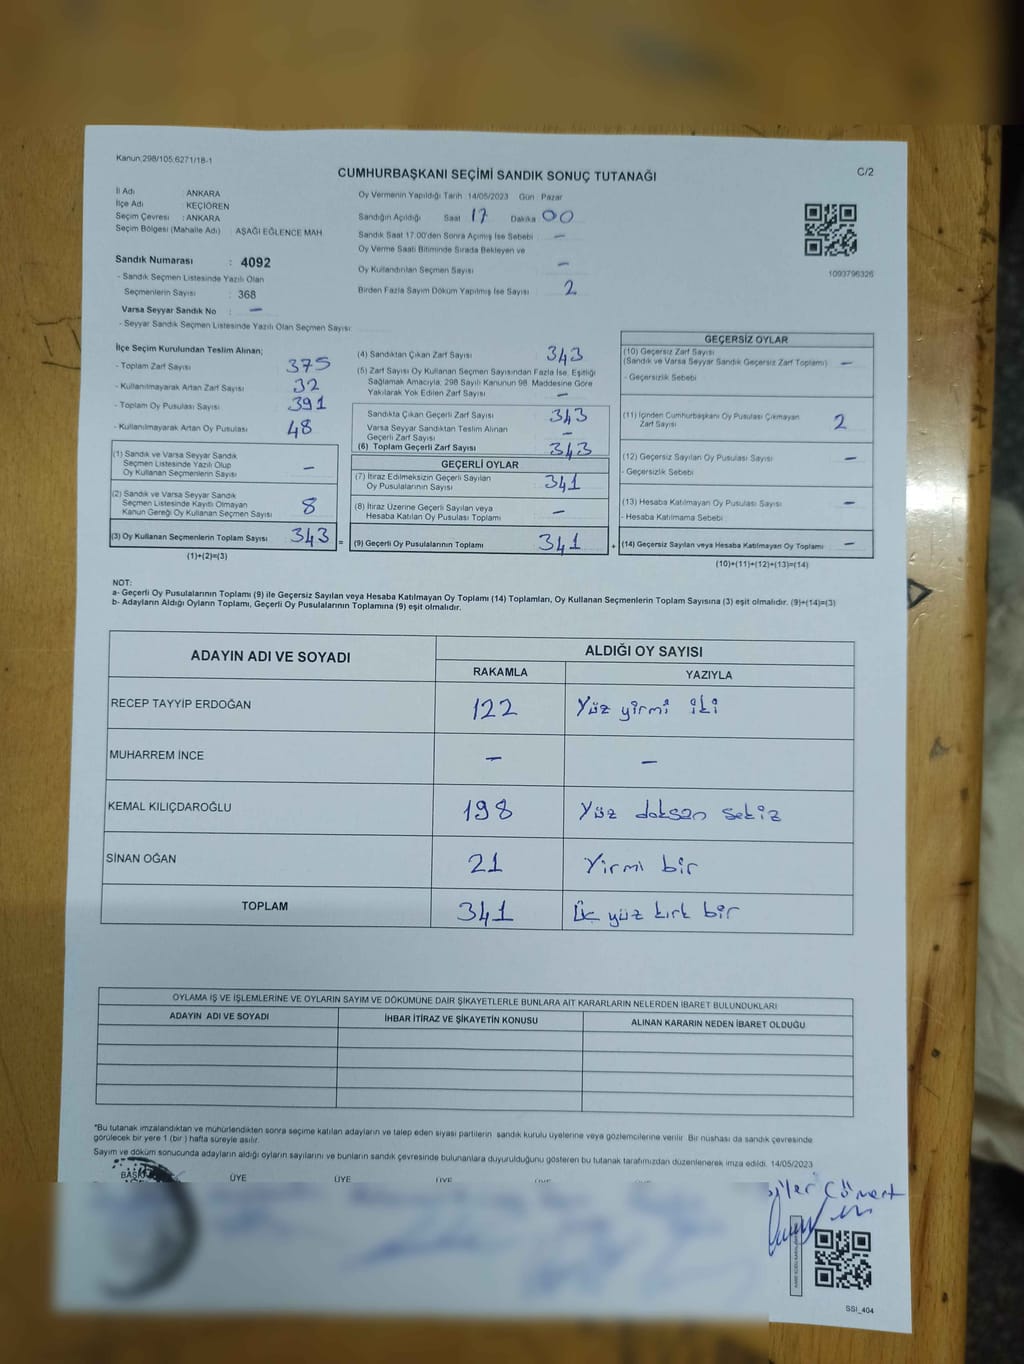 Kanun;298/105;6271/18-1
CUMHURBAŞKANI SEÇİMİ SANDIK SONUÇ TUTANAĞI
C/2
İl Adı : ANKARA
İlçe Adı : KEÇİÖREN
Seçim Çevresi : ANKARA
Seçim Bölgesi (Mahalle Adı) : AŞAĞI EĞLENCE MAH
Sandık Numarası : 4092
- Sandık Seçmen Listesinde Yazılı Olan
Seçmenlerin Sayısı : 368
Varsa Seyyar Sandık No : –
- Seyyar Sandık Seçmen Listesinde Yazılı Olan Seçmen Sayısı:
Oy Vermenin Yapıldığı Tarih 14/05/2023 Gün Pazar
Sandığın Açıldığı Saat 17 Dakika 00
Sandık Saat 17:00'den Sonra Açmış İse Sebebi –
Oy Verme Saati Bitiminde Sırada Bekleyen ve
Oy Kullandırılan Seçmen Sayısı –
Birden Fazla Sayım Döküm Yapılmış İse Sayısı 2
1093796326
İlçe Seçim Kurulundan Teslim Alınan;
- Toplam Zarf Sayısı 375
- Kullanılmayarak Artan Zarf Sayısı 32
- Toplam Oy Pusulası Sayısı 391
- Kullanılmayarak Artan Oy Pusulası 48
(1) Sandık ve Varsa Seyyar Sandık
Seçmen Listesinde Yazılı Olup
Oy Kullanan Seçmenlerin Sayısı –
(2) Sandık ve Varsa Seyyar Sandık
Seçmen Listesinde Kayıtlı Olmayan
Kanun Gereği Oy Kullanan Seçmen Sayısı 8
(3) Oy Kullanan Seçmenlerin Toplam Sayısı 343 =
(1)+(2)=(3)
(4) Sandıktan Çıkan Zarf Sayısı 343
(5) Zarf Sayısı Oy Kullanan Seçmen Sayısından Fazla İse, Eşitliği
Sağlamak Amacıyla, 298 Sayılı Kanunun 98. Maddesine Göre
Yakılarak Yok Edilen Zarf Sayısı –
Sandıkta Çıkan Geçerli Zarf Sayısı 343
Varsa Seyyar Sandıktan Teslim Alınan
Geçerli Zarf Sayısı –
(6) Toplam Geçerli Zarf Sayısı 343
GEÇERLİ OYLAR
(7) İtiraz Edilmeksizin Geçerli Sayılan
Oy Pusulalarının Sayısı 341
(8) İtiraz Üzerine Geçerli Sayılan veya
Hesaba Katılan Oy Pusulası Toplamı –
(9) Geçerli Oy Pusulalarının Toplamı 341 +
GEÇERSİZ OYLAR
(10) Geçersiz Zarf Sayısı
(Sandık ve Varsa Seyyar Sandık Geçersiz Zarf Toplamı) –
- Geçersizlik Sebebi
(11) İçinden Cumhurbaşkanı Oy Pusulası Çıkmayan
Zarf Sayısı 2
(12) Geçersiz Sayılan Oy Pusulası Sayısı –
- Geçersizlik Sebebi
(13) Hesaba Katılmayan Oy Pusulası Sayısı –
- Hesaba Katılmama Sebebi
(14) Geçersiz Sayılan veya Hesaba Katılmayan Oy Toplamı –
(10)+(11)+(12)+(13)=(14)
NOT:
a- Geçerli Oy Pusulalarının Toplamı (9) ile Geçersiz Sayılan veya Hesaba Katılmayan Oy Toplamı (14) Toplamları, Oy Kullanan Seçmenlerin Toplam Sayısına (3) eşit olmalıdır. (9)+(14)=(3)
b- Adayların Aldığı Oyların Toplamı, Geçerli Oy Pusulalarının Toplamına (9) eşit olmalıdır.
ADAYIN ADI VE SOYADI
ALDIĞI OY SAYISI
RAKAMLA YAZIYLA
RECEP TAYYİP ERDOĞAN 122 Yüz yirmi iki
MUHARREM İNCE – –
KEMAL KILIÇDAROĞLU 198 Yüz doksan sekiz
SİNAN OĞAN 21 Yirmi bir
TOPLAM 341 Üç yüz kırk bir
OYLAMA İŞ VE İŞLEMLERİNE VE OYLARIN SAYIM VE DÖKÜMÜNE DAİR ŞİKAYETLERLE BUNLARA AİT KARARLARIN NELERDEN İBARET BULUNDUKLARI
ADAYIN ADI VE SOYADI İHBAR İTİRAZ VE ŞİKAYETİN KONUSU ALINAN KARARIN NEDEN İBARET OLDUĞU
*Bu tutanak imzalandıktan ve mühürlendikten sonra seçime katılan adayların ve talep eden siyasi partilerin sandık kurulu üyelerine veya gözlemcilerine verilir. Bir nüshası da sandık çevresinde
görülecek bir yere 1 (bir ) hafta süreyle asılır.
Sayım ve döküm sonucunda adayların aldığı oyların sayılarını ve bunların sandık çevresinde bulunanlara duyurulduğunu gösteren bu tutanak tarafımızdan düzenlenerek imza edildi. 14/05/2023
ÜYE ÜYE ÜYE
Cömert
SSI_404